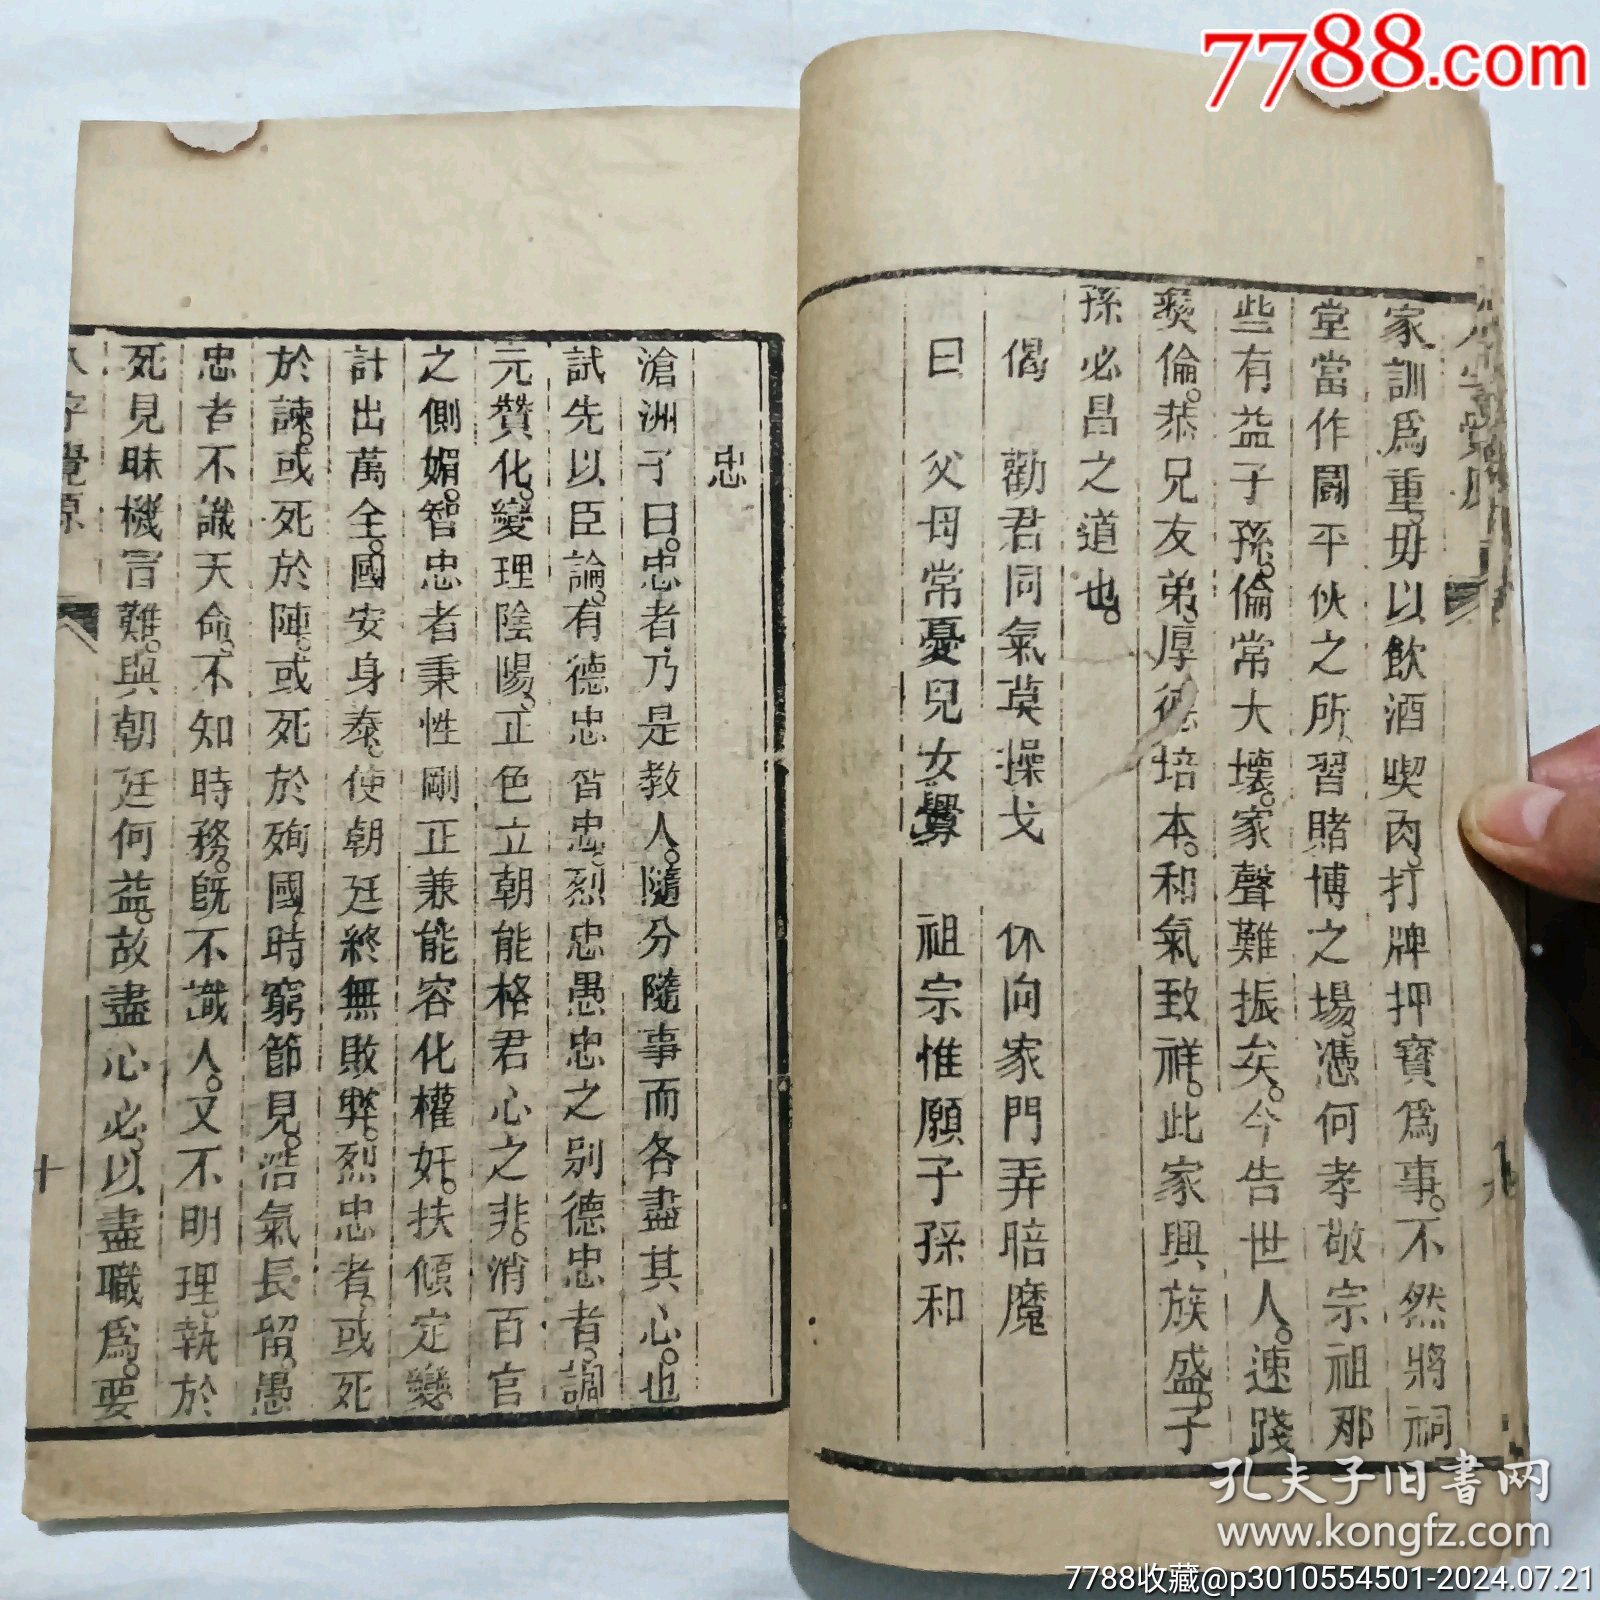 7788.com
家訓爲重。毋以飲酒喫肉。打牌押寶爲事。不然將祠
堂當作鬬平伙之所、習賭博之場。憑何孝敬宗祖那
些有益子孫。倫常大壞。家聲難振矣。今告世人。速踐
彛倫。恭兄友弟。厚德培本。和氣致祥。此家興族盛。子
孫必昌之道也。
偈 勸君同氣莫操戈 休向家門弄暗魔
曰 父母常憂兒女釁 祖宗惟願子孫和
忠
滄洲子曰。忠者、乃是教人。隨分隨事而各盡其心。也
試先以臣論。有德忠智忠。烈忠愚忠之别德忠者。調
元贊化。變理陰陽、正色立朝能格君心之非。消百官
之側媚。智忠者秉性剛正兼能容化權奸。扶傾定變
計出萬全。國安身泰。使朝廷終無敗弊。烈忠者、或死
於諫。或死於陣。或死於殉國、時窮節見。浩氣長留。愚
忠者不識天命。不知時務。旣不識人。又不明理。執於
死見昧機冒難。與朝廷何益。故盡心必、以盡職爲。要
八字覺原
十
孔夫子旧書网
www.kongfz.com
7788收藏@p3010554501-2024.07.21